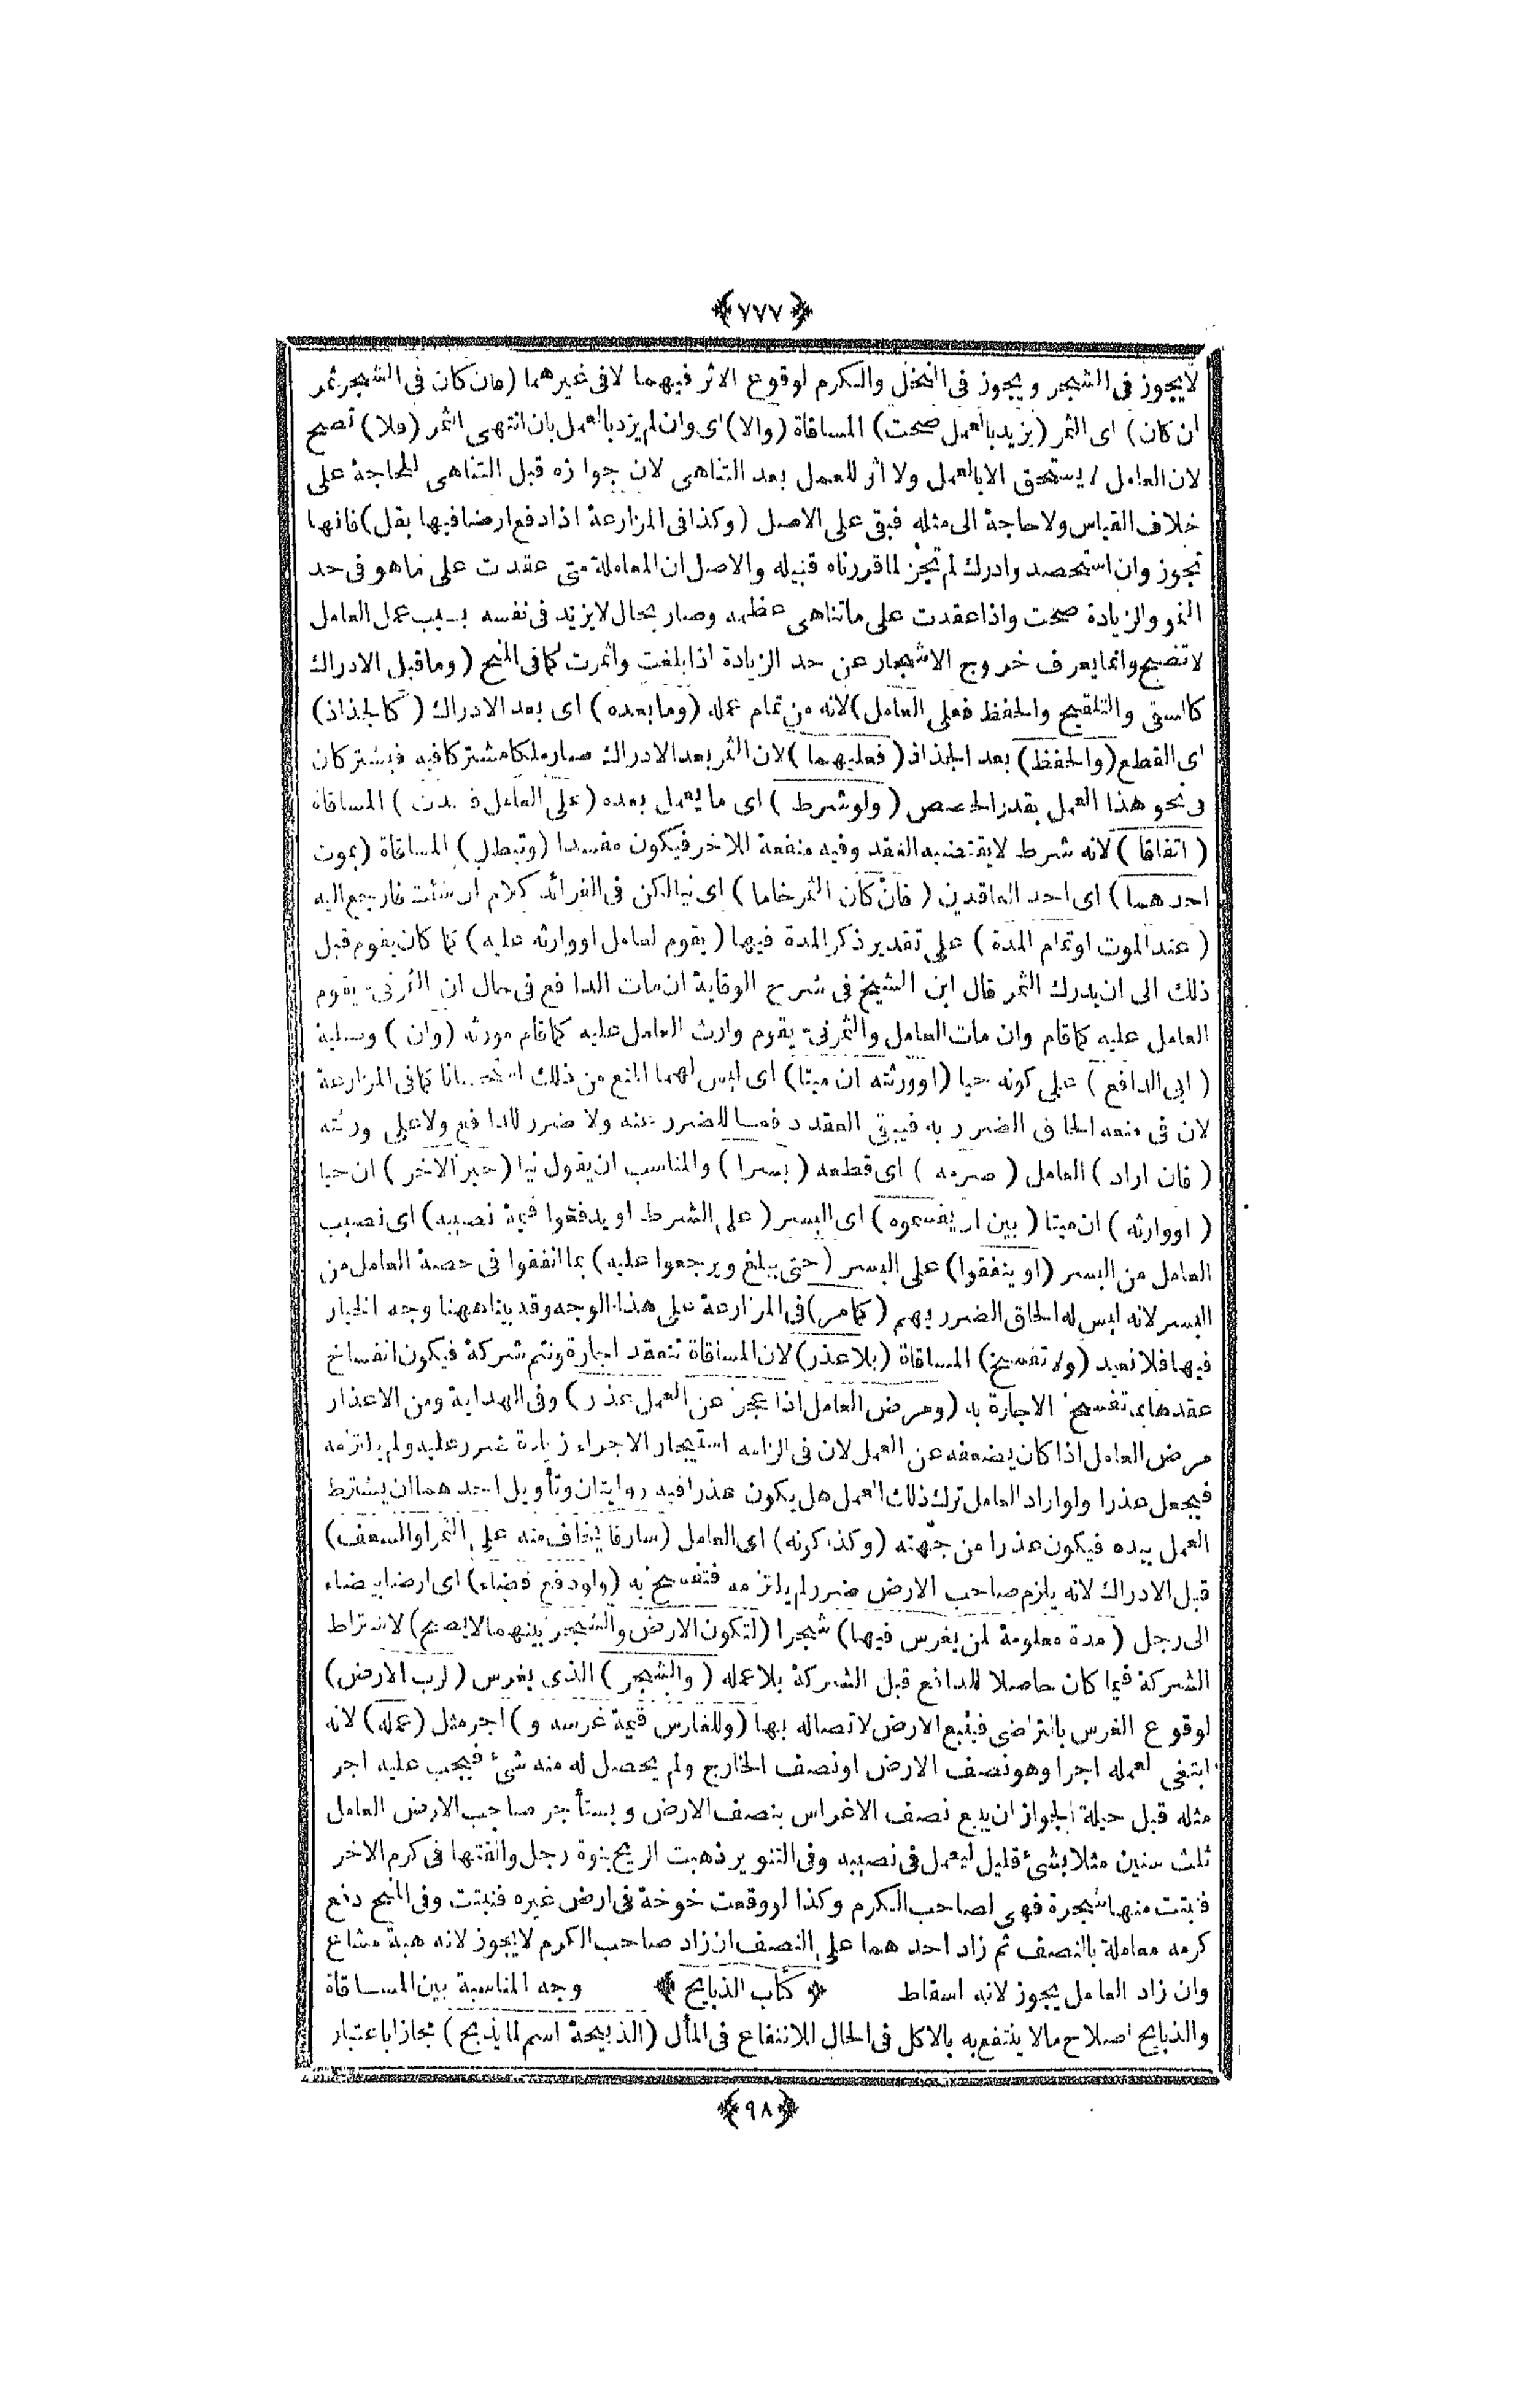 ﴿٧٧٧﴾
لايجوز فى الشجر ويجوز فى النخل والكرم لوقوع الاثر فيهما لافى غيرهما (فان كان فى الشجر ثمر
ان كان) اى الثمر (يزيد بالعمل صحت) المساقاة (والا) اى وان لم يزد بالعمل بان انتهى الثمر (فلا) تصح
لان العامل لايستحق الا بالعمل ولا اثر للعمل بعد التناهى لان جوازه قبل التناهى للحاجة على
خلاف القياس ولا حاجة الى مثله فبقى على الاصل (وكذا فى المزارعة اذا دفع ارضا فيها بقل) فانها
تجوز وان استحصد وادرك لم تجز لما قررناه قبيله والاصل ان المعاملة متى عقدت على ماهو فى حد
النمو والزيادة صحت واذا عقدت على ماتناهى عظمه وصار بحال لايزيد فى نفسه بسبب عمل العامل
لاتصح وانما يعرف خروج الاشجار عن حد الزيادة اذا بلغت واثمرت كما فى المنح (وما قبل الادراك
كالسقى والتلقيح والحفظ فعلى العامل) لانه من تمام عمله (وما بعده) اى بعد الادراك (كالجذاذ)
اى القطع (والحفظ) بعد الجذاذ (فعليهما) لان الثمر بعد الادراك صار ملكا مشتركا فيه فيشتركان
فى نحو هذا العمل بقدر الحصص (ولو شرط) اى ما يعمل بعده (على العامل فسدت) المساقاة
(اتفاقا) لانه شرط لايقتضيه العقد وفيه منفعة للاخر فيكون مفسدا (وتبطل) المساقاة (بموت
احدهما) اى احد العاقدين (فان كان الثمر خاما) اى نيا لكن فى الفرائد كلام ان شئت فارجع اليه
(عند الموت او تمام المدة) على تقدير ذكر المدة فيها (يقوم العامل او وارثه عليه) كما كان يقوم قبل
ذلك الى ان يدرك الثمر قال ابن الشيخ فى شرح الوقاية ان مات الدافع فى حال ان الثمر نى يقوم
العامل عليه كما قام وان مات العامل والثمر نى يقوم وارث العامل عليه كما قام مورثه (وان) وصلية
(ابى الدافع) على كونه حيا (او ورثته ان ميتا) اى ليس لهما المنع من ذلك استحسانا كما فى المزارعة
لان فى منعه الحاق الضرر به فيبقى العقد دفعا للضرر عنه ولا ضرر للدافع ولا على ورثته
(فان اراد) العامل (صرمه) اى قطعه (بسرا) والمناسب ان يقول نيا (خير الاخر) ان حيا
(او وارثه) ان ميتا (بين ان يقسموه) اى البسر (على الشرط او يدفعوا قيمة نصيبه) اى نصيب
العامل من البسر (او ينفقوا) على البسر (حتى يبلغ ويرجعوا عليه) بما انفقوا فى حصة العامل من
البسر لانه ليس له الحاق الضرر بهم (كما مر) فى المزارعة على هذا الوجه وقد بينا ههنا وجه الخيار
فيها فلا نعيد (ولا تفسخ) المساقاة (بلا عذر) لان المساقاة تنعقد اجارة وتتم شركة فيكون انفساخ
عقدها بما تفسخ الاجارة به (ومرض العامل اذا عجز عن العمل عذر) وفى الهداية ومن الاعذار
مرض العامل اذا كان يضعفه عن العمل لان فى الزامه استيجار الاجراء زيادة ضرر عليه ولم يلتزمه
فيجعل عذرا ولو اراد العامل ترك ذلك العمل هل يكون عذرا فيه روايتان وتأويل احدهما ان يشترط
العمل بيده فيكون عذرا من جهته (وكذا كونه) اى العامل (سارقا يخاف منه على الثمر او السعف)
قبل الادراك لانه يلزم صاحب الارض ضرر لم يلتزمه فتفسخ به (ولو دفع فضاء) اى ارضا بيضاء
الى رجل (مدة معلومة لمن يغرس فيها) شجرا (لتكون الارض والشجر بينهما لايصح) لاشتراط
الشركة فيما كان حاصلا للدافع قبل الشركة بلا عمله (والشجر) الذى يغرس (لرب الارض)
لوقوع الغرس بالتراضى فيتبع الارض لاتصاله بها (وللغارس قيمة غرسه و) اجر مثل (عمله) لانه
ابتغى لعمله اجرا وهو نصف الارض او نصف الخارج ولم يحصل له منه شئ فيجب عليه اجر
مثله قيل حيلة الجواز ان يبيع نصف الاغراس بنصف الارض ويستأجر صاحب الارض العامل
ثلث سنين مثلا بشئ قليل ليعمل فى نصيبه وفى التنوير ذهبت الريح بنوة رجل والقتها فى كرم الاخر
فنبتت منها شجرة فهى لصاحب الكرم وكذا لو وقعت خوخة فى ارض غيره فنبتت وفى المنح دفع
كرمه معاملة بالنصف ثم زاد احدهما على النصف ان زاد صاحب الكرم لايجوز لانه هبة مشاع
وان زاد العامل يجوز لانه اسقاط ﴿كتاب الذبايح﴾ وجه المناسبة بين المساقاة
والذبايح اصلاح مالا ينتفع به بالاكل فى الحال للانتفاع فى المأل (الذبيحة اسم لما يذبح) مجازا باعتبار
﴿٩٨﴾